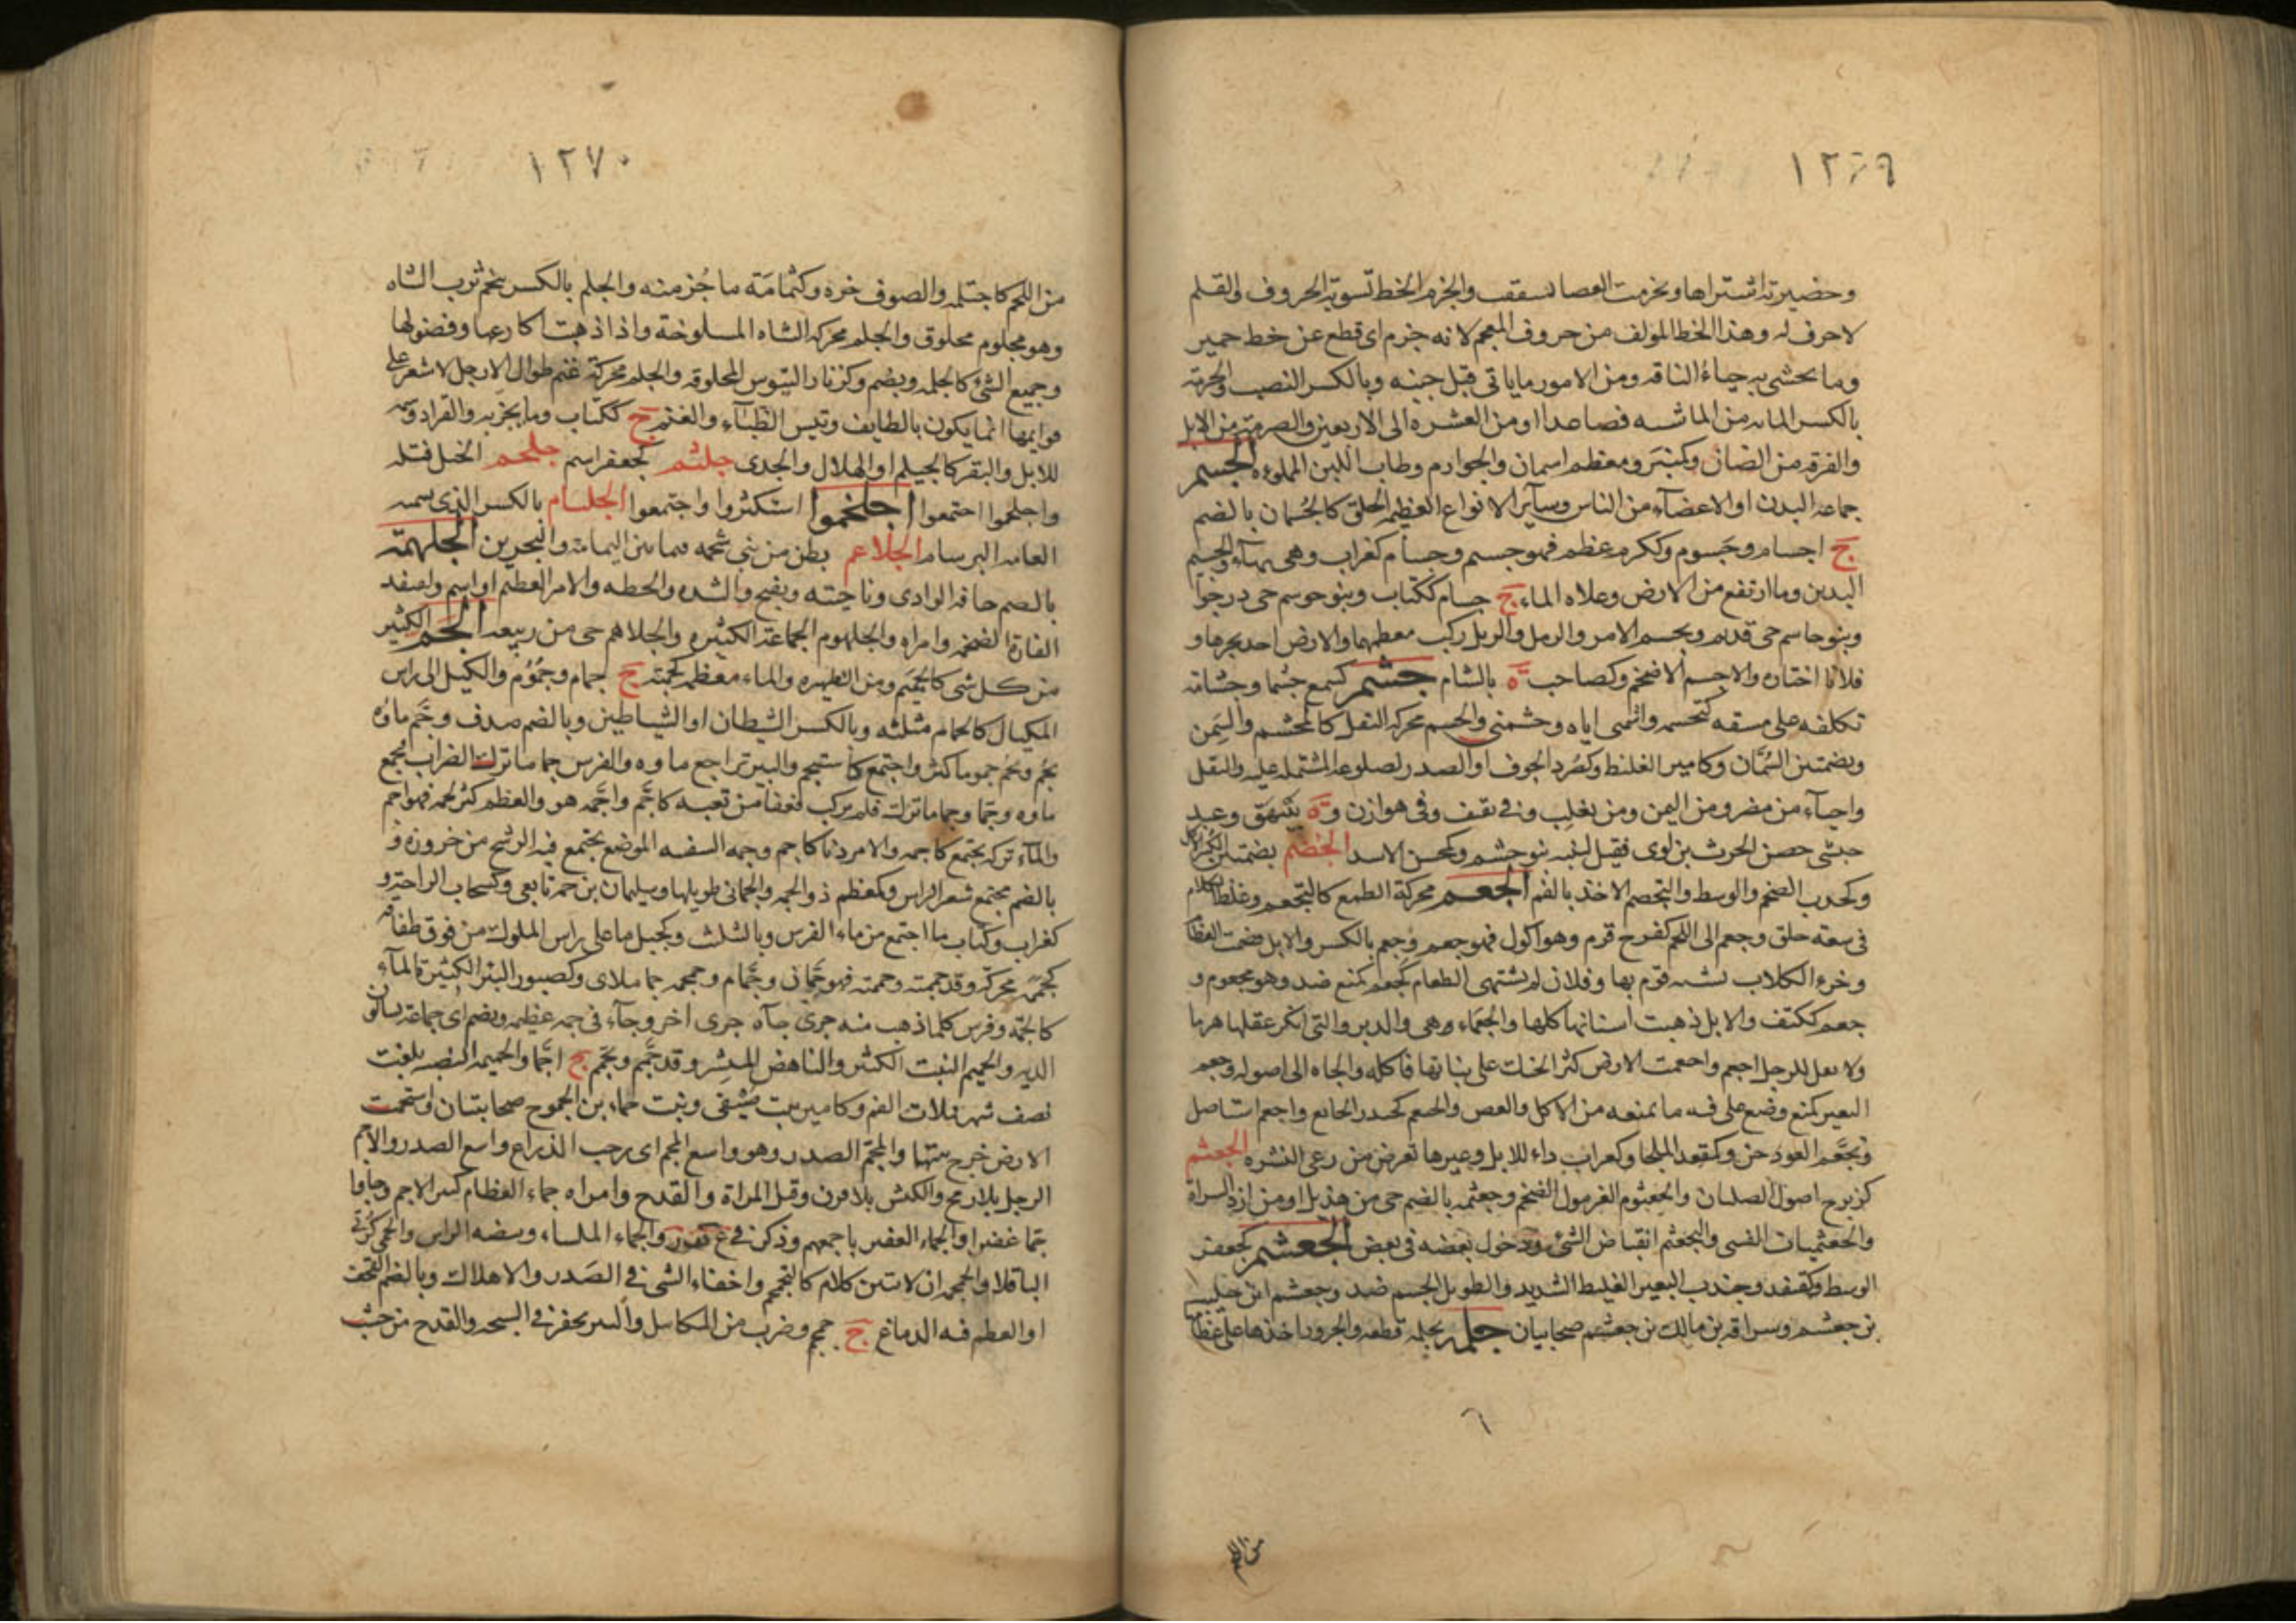 ١٢٦٩
وحضيرته اشتراها وتجزمت العصا تشققت والجزم الخط تسوية الحروف والقلم
لا حرف له وهذا الخط المولف من حروف المعجم لانه جزم اى قطع عن خط حمير
وما يحشى به حياء الناقة ومن الامور ما ياتى قبل حينه وبالكسر النصيب والجزمة
بالكسر المائة من الماشية فصاعدا او من العشرة الى الاربعين والصرمة من الابل
والفرقة من الضان وكمنبر ومعظم اسمان والجوازم وطاب اللبن المملوءة الجسم
جماعة البدن او الاعضاء من الناس وساير الانواع العظيمة الخلق كالجسمان بالضم
ج اجسام وجسوم وككرم عظم فهو جسيم وجسام كغراب وهى بهاء والجسيم
البدين وما ارتفع من الارض وعلاه الماء ج جسام ككتاب وبنو جوسم حى درجوا
وبنو جاسم حى قديم وتجسم الامر والرمل والريل ركب معظمهما والارض اخذ نحوها و
فلانا اختاره والاجسم الاضخم وكصاحب ة بالشام جشم كسمع جشما وجشامة
تكلفه على مشقة كتجشمه واجشمنى اياه وجشمنى والجشم محركة الثقل كالجشم والسمن
وبضمتين السمان وكامير الغليظ وكصرد الجوف او الصدر بضلوعه المشتملة عليه والثقل
واحياء من مضر ومن اليمن ومن تغلب وفى ثقيف وفى هوازن وة ببيهق وعبد
حبشى حضن الحرث بن لوى فقيل لبنيه بنو جشم وكمحسن الاسد الجضم بضمتين الكثير الاكل
وكجندب الضخم والوسط والتجضم الاخذ بالفم الجعم محركة الطمع كالتجعم وغلظ الكلام
فى سعة حلق وجعم الى اللحم كفرح قرم وهو اكول فهو جعم وجعم بالكسر والابل قضمت العظام
وخرء الكلاب لشبه قرم بها وفلان لم يشتهى الطعام كجعم كمنع ضد وهو مجعوم و
جعم ككتف والابل ذهبت اسنانها كلها والجعماء وهى والدبر والتى انكر عقلها هرما
ولا يقل للرجل اجعم واجعمت الارض كثر الحنك على نباتها فاكله والجاه الى اصوله وجعم
البعير كمنع وضع على فيه ما يمنعه من الاكل والعض والجيعم كحيدر الجايع واجعم استاصل
وتجعم العود حن وكمقعد الملجا وكغراب داء للابل وغيرها تعرض من رعى النشر الجعثم
كزبرج اصول الصليان والجعثوم الغرمول الضخم وجعثمة بالضم حى من هذيل او من ازد السراة
والجعثميات القسى والتجعثم انقباض الشئ ودخول بعضه فى بعض الجعشم كجعفر
الوسط وكقنفد وجندب البعير الغليظ الشديد والطويل الجسم ضد وجعشم ابن خليبة
بن جعشم وسراقة بن مالك بن جعشم صحابيان جلمه يجلمه قطعه والجزور اخذ ما على عظامها
٦
من اللحم
١٢٧٠
من اللحم كاجتلمه والصوف جزه وكثمامة ما جز منه والجلم بالكسر شحم ثرب الشاه
وهو مجلوم محلوق والجلمة محركة الشاه المسلوخة واذا ذهبت اكارعها وفضولها
وجميع الشئ كالجلمة ويضم وكزنار التيوس المحلوقة والجلم محركة غنم طوال الارجل لا شعر على
قوايمها انما يكون بالطايف وتيس الظباء والغنم ج ككتاب وما يجز به والقراد وسمة
للابل والبقر كالجيلم او الهلال والجدى جلثم كجعفر اسم جلحم الخيل فتله
واجلحموا اجتمعوا اجلخموا استكثروا واجتمعوا الجلسام بالكسر الذى تسميه
العامة البرسام الجلاعم بطن من بنى شحمة فيما بين اليمامة والبحرين الجلهمة
بالضم حافة الوادى وناحيته ويفتح والشدة والخطة والامر العظيم او اسم ولصفد
الفارة الضخمة وامراة والجلهوم الجماعة الكثيرة والجلاهم حى من ربيعة الجم الكثير
من كل شئ كالجميم ومن الظهيرة والماء معظمه كجمته ج جمام وجموم والكيل الى راس
المكيال كالجمام مثلثة وبالكسر الشيطان او الشياطين وبالضم صدف وجم ماؤه
يجم ويجم جموما كثر واجتمع كاستجم والبير تراجع ماوه والفرس جما ما ترك الضراب فجمع
ماوه وجما وجماما ترك فلم يركب فعفا من تعبه كاجم واجمه هو والعظم كثر لحمه فهو اجم
والماء تركه يجتمع كاجمه والامر دنا كاجم وجمة السفينة الموضع يجتمع فيه الرشح من خروزه و
بالضم مجتمع شعر الراس وكمعظم ذو الجمة والجمانى طويلها وسليمان بن جمة تابعى وكسحاب الراحة و
كغراب وكتاب ما اجتمع من ماء الفرس وبالتثليث وكجبل ما على راس المكوك من فوق طفافه
كجممه محركة وقد جممته وجممته فهو جمان وجمام وجمجمة جما ملاى وكصبور البئر الكثيرة الماء
كالجمة وفرس كلما ذهب منه جرى جاه جرى اخر وجاء فى جمة عظيمة ويضم اى جماعة يسالون
الدية والجميم النبت الكثير والناهض المنتشر وقد جمم وتجمم ج اجما والجميمة النصية بلغت
نصف شهر فملات الفم وكامير بيت ميشفى وبنت حمام بن الجموح صحابيتان واستجمت
الارض خرج نبتها والمجم الصدر وهو واسع المجم اى رحب الذراع واسع الصدر والاجم
الرجل بلا رمح والكبش بلا قرن وقبل المراة والقدح وامراه جماء العظام كثيرة اللحم وجاؤا
جما غفيرا والجماء الغفير باجمعهم وذكر فى غ ف ر والجماء الملساء وبيضة الراس والجمى كربى
الباقلا والجمجمة ان لا تبين كلامك كالتجمجم واخفاء الشئ فى الصدر والاهلاك وبالضم القحف
او العظم فيه الدماغ ج جمجم وضرب من المكاييل والبير تحفر فى السبخة والقدح من خشب